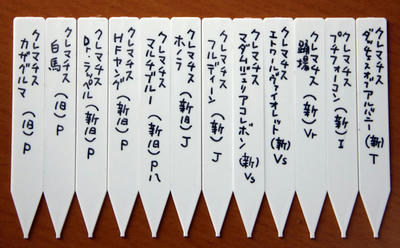 クレマチス
ダッチェスオブアルバニー(新) T
クレマチス
プチフォーコン(新) I
クレマチス
踊場(新) Vr
クレマチス
エトワールヴァイオレット(新) Vs
クレマチス
マダムジュリアコレボン(新) Vs
クレマチス
フルディーン(新) J
クレマチス
ホノラ(新旧) J
クレマチス
マルチブルー(新旧) P
クレマチス
HFヤング(新旧) P
クレマチス
Dr.ラッペル(新旧) P
クレマチス
白馬(旧) P
クレマチス
カザグルマ(旧) P